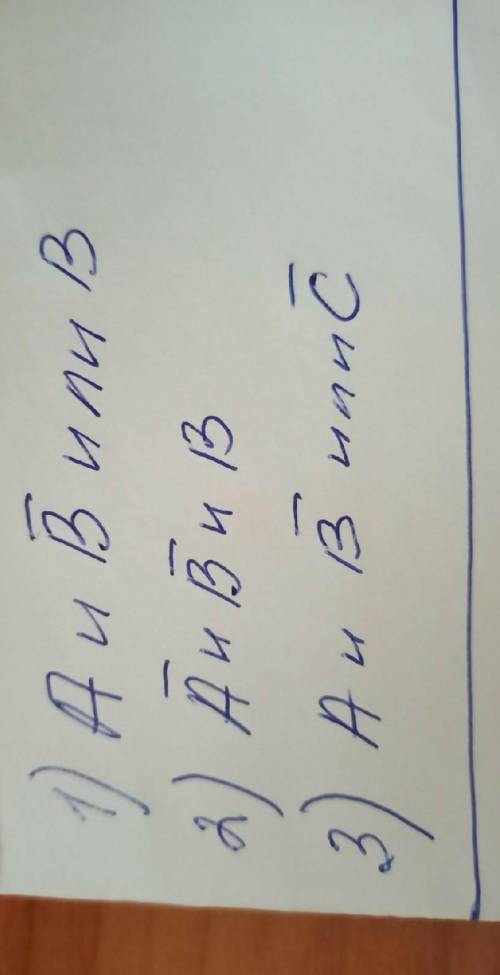 1) A и B̅ или B
2) A̅ и B̅ и B
3) A и B̅ или C̅